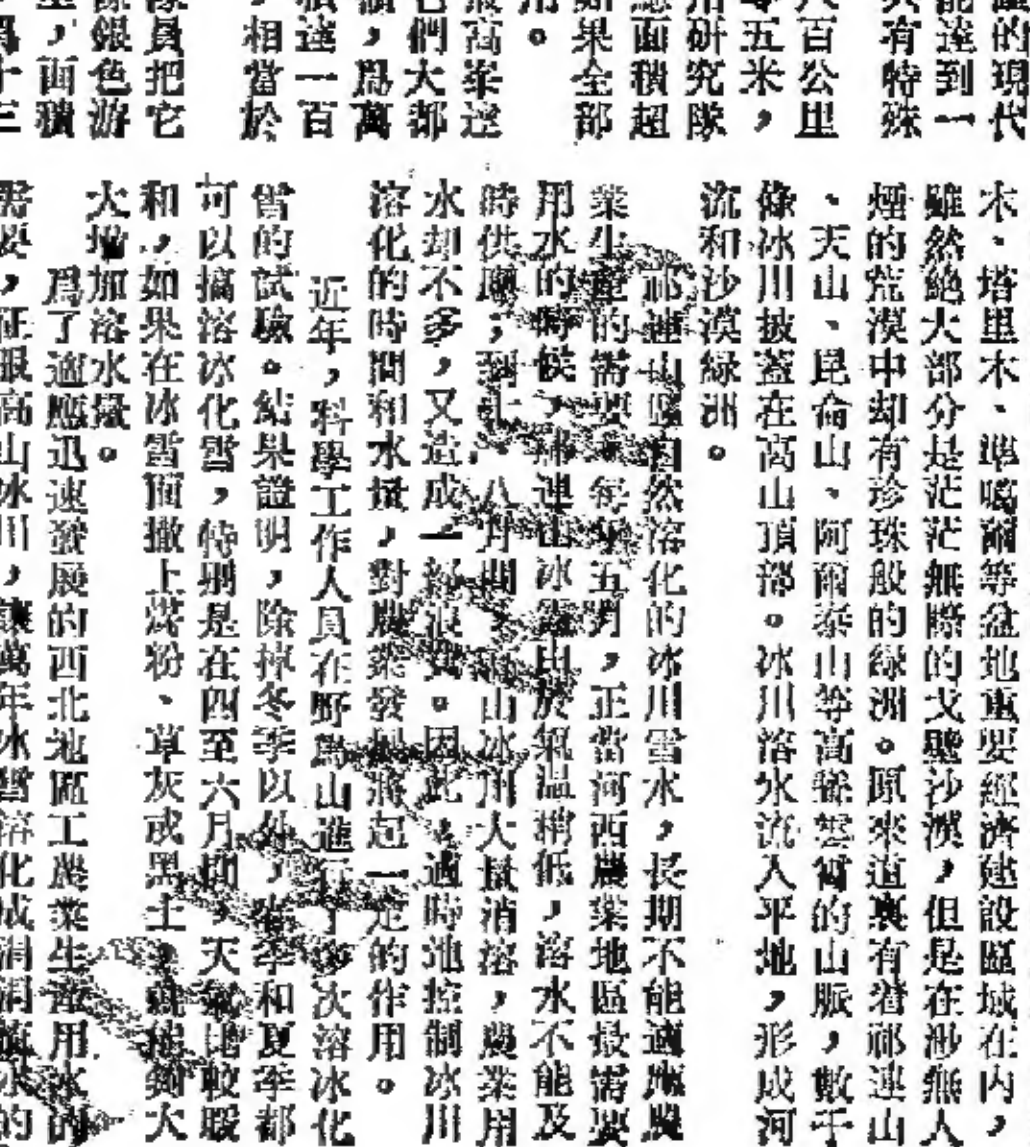 的現代
能達到一
有特殊
百公里
五米，
研究隊
總面積超
如果全部
。
高峯達
們大都
，爲萬
達一百
，相當於
隊員把它
銀色游
，面積
十三
木、塔里木、準噶爾等盆地重要經濟建設區域在內，
雖然絕大部分是茫茫無際的戈壁沙漠，但是在渺無人
煙的荒漠中却有珍珠般的綠洲。原來這裏有着祁連山
、天山、昆侖山、阿爾泰山等高聳雲霄的山脈，數千
條冰川披蓋在高山頂部。冰川溶水流入平地，形成河
流和沙漠綠洲。
祁連山區自然溶化的冰川雪水，長期不能適應農
業生產的需要。每年五月，正當河西農業地區最需要
用水的時候，祁連山冰雪由於氣溫稍低，溶水不能及
時供應；到七、八月間，高山冰川大量消溶，農業用
水却不多，又造成一種浪費。因此，適時地控制冰川
溶化的時間和水量，對農業發展將起一定的作用。
近年，科學工作人員在野馬山進行了多次溶冰化
雪的試驗。結果證明，除掉冬季以外，春季和夏季都
可以搞溶冰化雪，特別是在四至六月間，天氣比較暖
和，如果在冰雪面撒上煤粉、草灰或黑土，就能夠大
大增加溶水量。
爲了適應迅速發展的西北地區工農業生產用水的
需要，征服高山冰川，讓萬年冰雪溶化成涓涓流水的